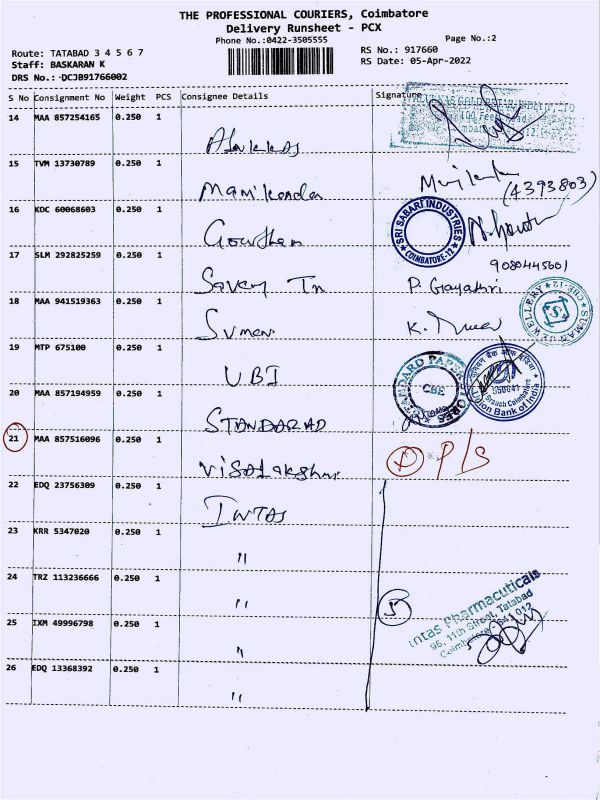 THE PROFESSIONAL COURIERS, Coimbatore
Delivery Runsheet - PCX
Phone No.:0422-3505555
Page No.:2
Route: TATABAD 3 4 5 6 7
RS No.: 917660
Staff: BASKARAN K
RS Date: 05-Apr-2022
DRS No.: DCJB91766002
S No Consignment No Weight PCS Consignee Details Signature
14 MAA 857254165 0.250 1
100 Feet Road
15 TVM 13730789 0.250 1
Manikanda
(4393803)
16 KDC 60068603 0.250 1
Gowtham
SRI SABARI INDUSTRIES
COIMBATORE-12
17 SLM 292825259 0.250 1
9080445601
Savey In P. Gayathri
18 MAA 941519363 0.250 1
Suman K.
SUMAN JEWELLERY CBE-12
19 MTP 675100 0.250 1
UBI
Union Bank of India
Branch Coimbatore
20 MAA 857194959 0.250 1
STANDARAD
STANDARD PAPER STORES
CBE
21 MAA 857516096 0.250 1
Visalakshi P/S
22 EDQ 23756309 0.250 1
INTAS
23 KRR 5347020 0.250 1
"
24 TRZ 113236666 0.250 1
"
5
Intas Pharmaceuticals
96, 11th Street, Tatabad
Coimbatore-641 012
25 IXM 49996798 0.250 1
"
26 EDQ 13368392 0.250 1
"